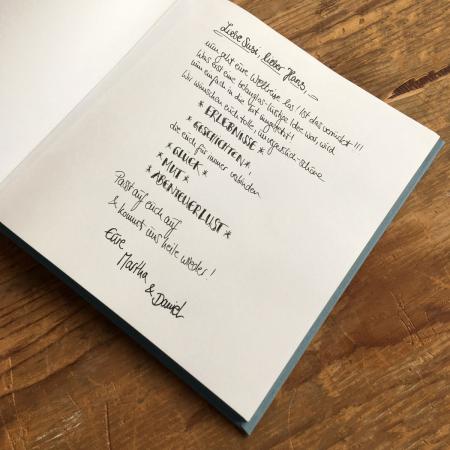 Liebe Susi, lieber Hans,
nun geht eure Weltreise los! Ist das verrückt!!!
Was erst eine Idee war, wird
nun einfach in die Tat umgesetzt!
Wir wünschen euch tolle, unglaublich schöne
*ERLEBNISSE*
*GESCHICHTEN*
die euch für immer verbinden
*GLÜCK*
*MUT*
*ABENTEUERLUST*
Passt auf euch auf
& kommt uns heile wieder!
Eure
Martha
& Daniel